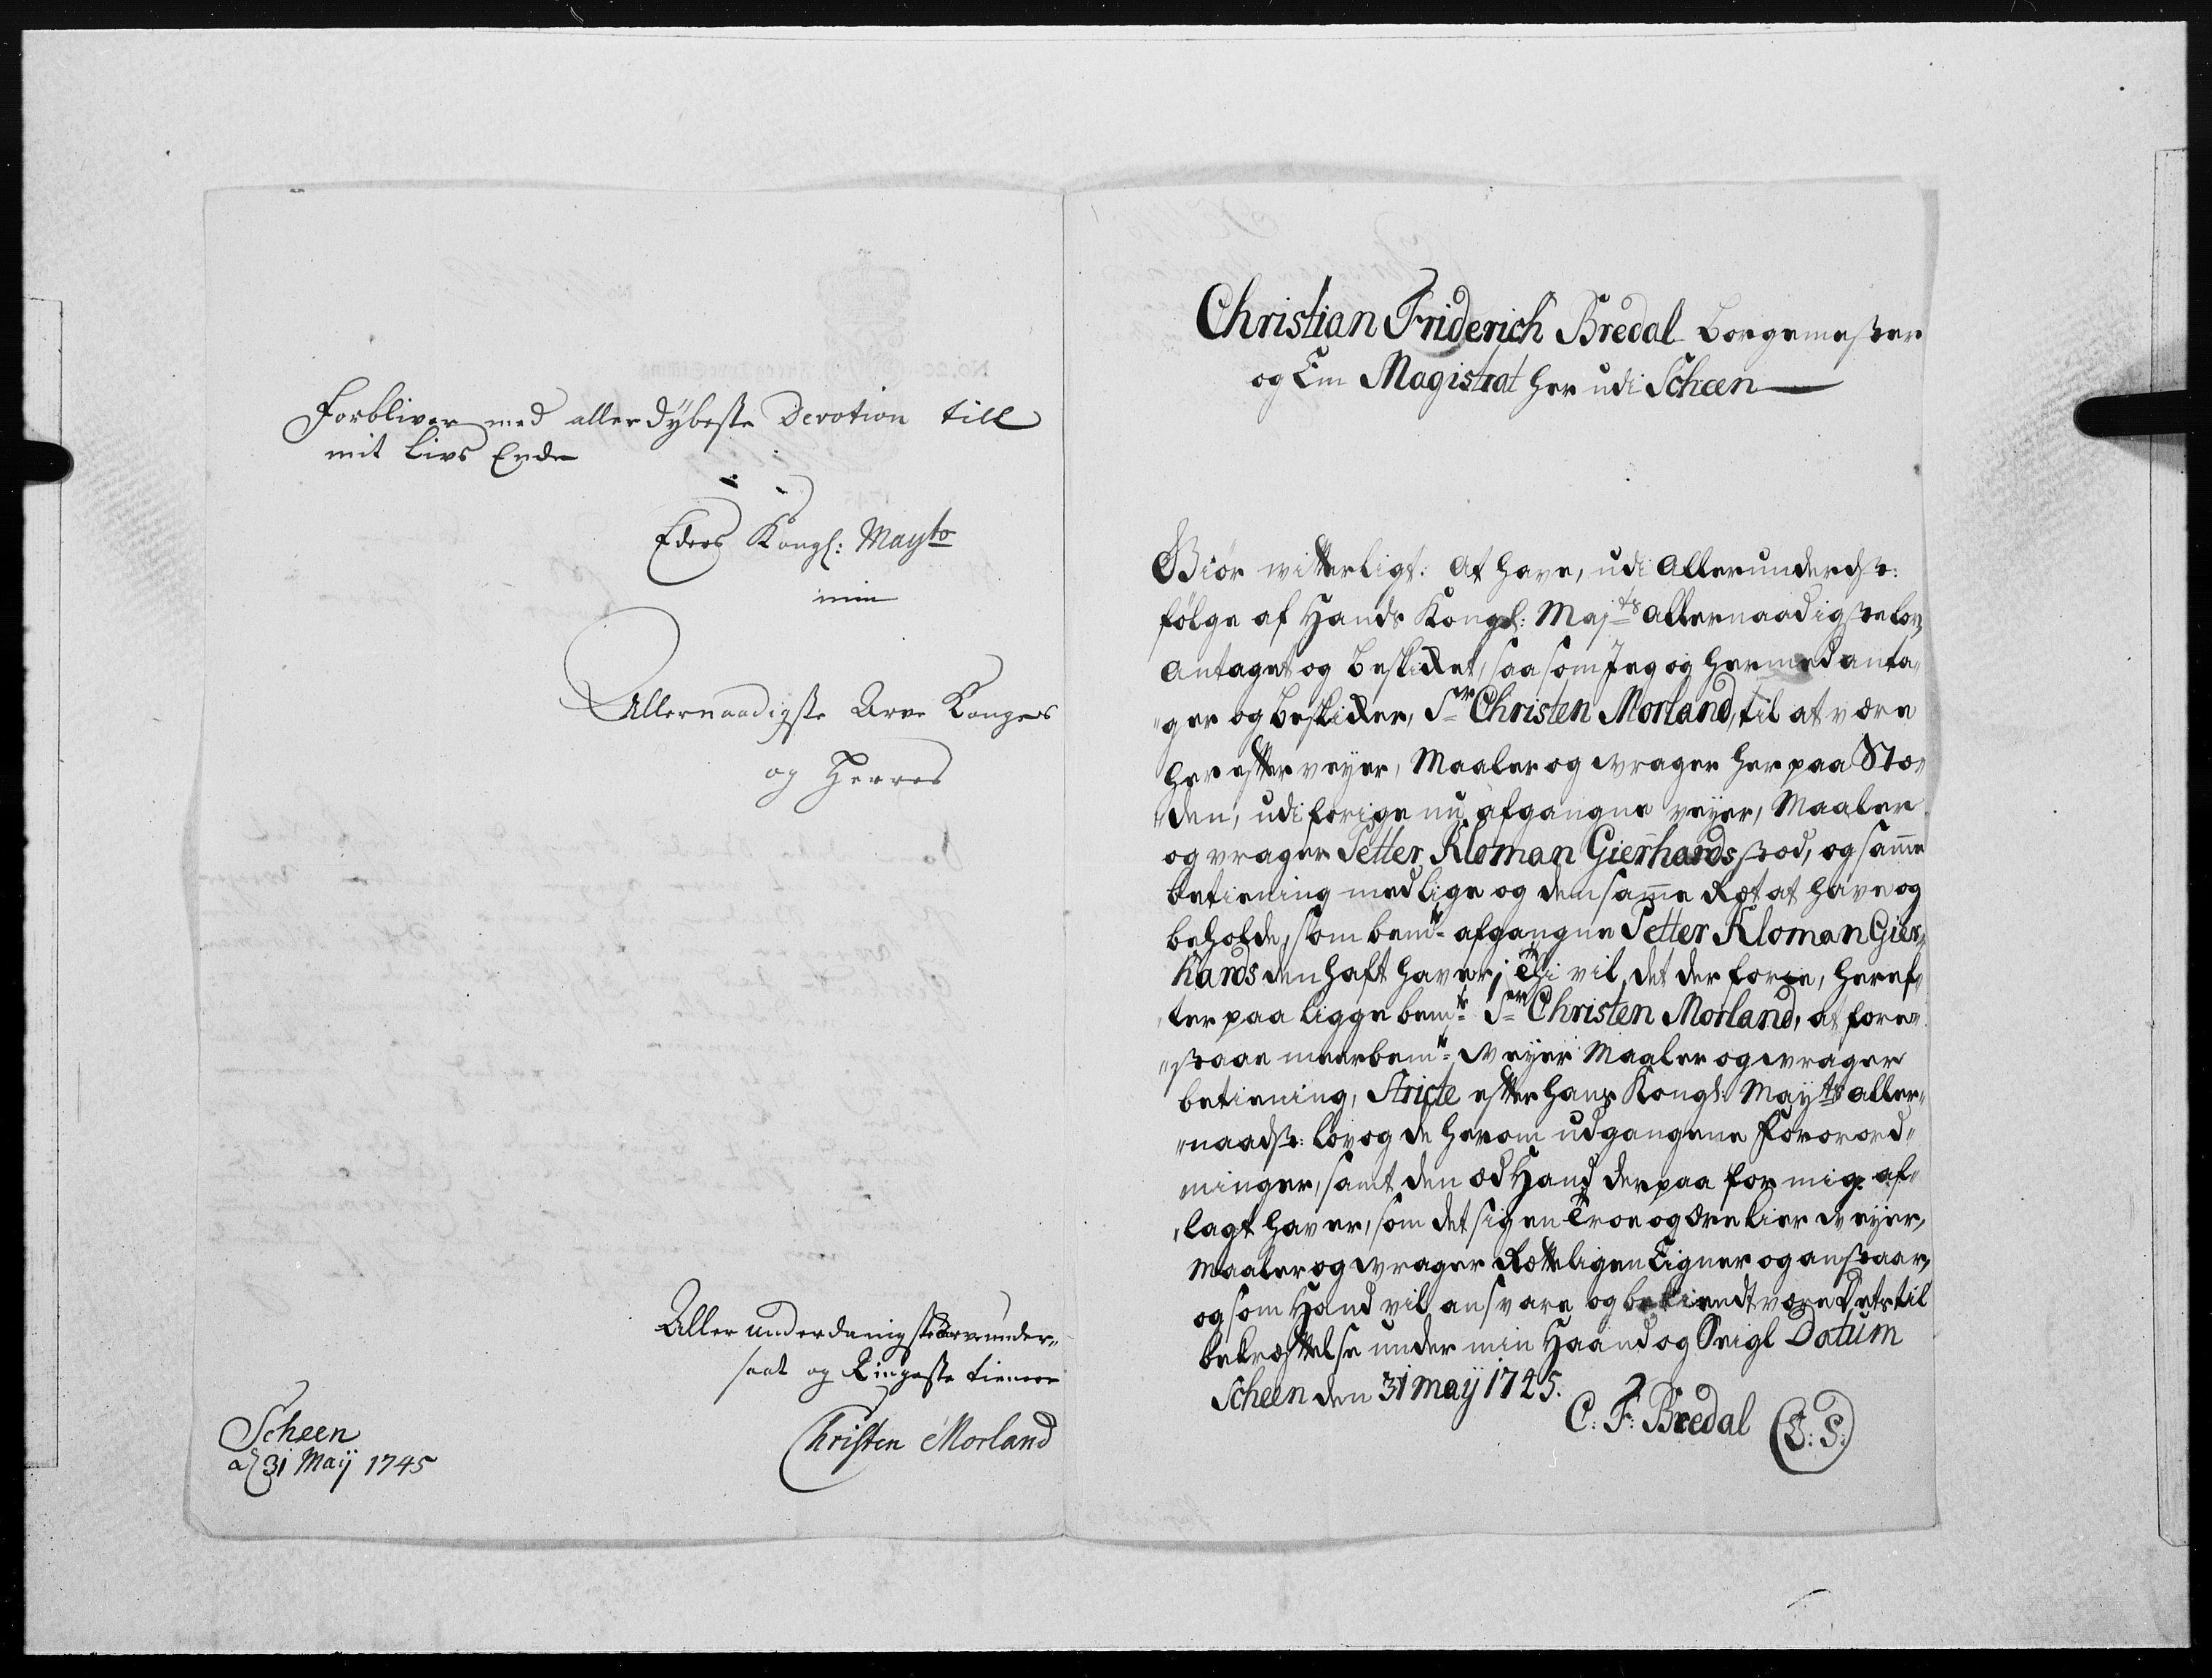 Forbliver med aller dÿbeste Devotion till
mit Livs Ende
Eders Kongl: Mayts
min
Allernaadigste Arve Konges
og Herres
Aller underdanigste Arve under„
saat og Ringeste tienere
Christen Morland
Scheen
d 31 Maÿ 1745
Christian Friderich Bredal Borgemester
og Em Magistrat her udi Scheen
Giör witterligt: At have, udi Allerunderdst:
fölge af Hands Kongl: Majts allernaadigste lov,
Antaget og beskikket, saa som Jeg og hermed anta„
„ger og beskikker, Sr Christen Morland, til at være
her efter veyer, Maaler og wrager her paa Stæ„
„den, udi forige nu afgangne veyer, Maaler
og vrager Petter Kloman Gierhards stæd, og samme
betiening med lige og den samme Ret at have og
beholde, som bemte afgangne Petter Kloman Gier„
hards den haft haver; Thi vil det der fore, heref„
„ter paa ligge bemte Sr Christen Morland, at fore„
„staae meerbemte weÿer Maaler og wrager
betiening, Stricte efter hans Kongl: Mayts aller„
„naadst: lov og de herom udgangene Forord„
ninger, samt den æd Hand derpaa for mig af„
„lagt haver, som det sig en Troe og ærekier weÿer,
Maaler og wrager Retteligen Eigner og anstaar,
og som Hand vil ansvare og bekiendt være Dets til
bekræftelse under min Haand og Seigl Datum
Scheen den 31 maÿ 1745.
C: F: Bredal (L: S:)